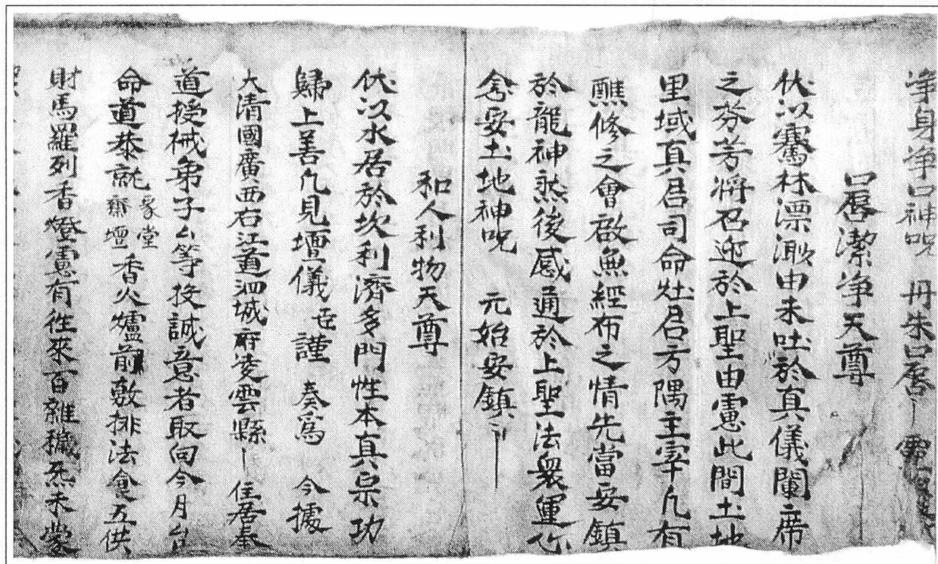 净身净口神呪 丹朱口唇
口唇潔净天尊
伏以騫林漂渺由未吐於真儀蘭席
之芬芳將召迎於上聖由慮此間土地
里域真君司命灶君方隅主宰凡有
醮修之會啟無經布之情先當安鎮
於龍神然後感通於上聖法衆運心
念安土地神呪 元始安鎮
和人利物天尊
伏以水居於坎利濟多門性本真宗功
歸上善凡見壇儀臣謹 奏爲 今據
大清國廣西右江道泗城府凌雲縣 住居奉
道授械弟子厶等投誠意者取向今月
命道恭就家堂齋壇香火爐前敷排法食五供
財馬羅列香燈慮有往來百雜穢炁未蒙